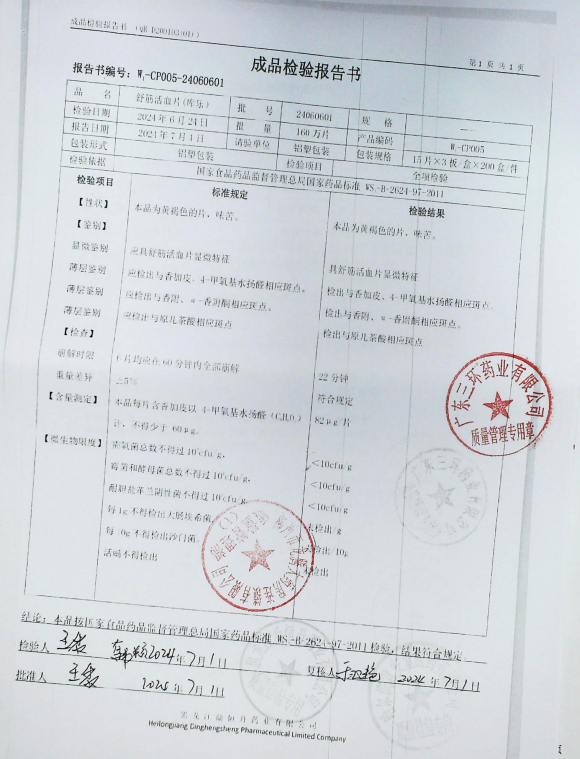 成品检验报告书
第 1 页 共 1 页
成品检验报告书
报告书编号：W₁-CP005-24060601
品 名 舒筋活血片(库乐) 批 号 24060601 规 格 ——
检验日期 2024年6月24日 批 量 160万片 产品编码 W₁-CP005
报告日期 2024年7月1日 请验单位 铝塑车间
包装形式 铝塑包装 包装规格 15片×3板/盒×200盒/件
检验项目 全项检验
检验依据 国家食品药品监督管理总局国家药品标准 WS-B-2624-97-2011
检验项目 标准规定 检验结果
【性状】 本品为黄褐色的片，味苦。 本品为黄褐色的片，味苦。
【鉴别】
显微鉴别 应具舒筋活血片显微特征 具舒筋活血片显微特征
薄层鉴别 应检出与香加皮、4-甲氧基水杨醛相应斑点。 检出与香加皮、4-甲氧基水杨醛相应斑点。
薄层鉴别 应检出与香附、α-香附酮相应斑点。 检出与香附、α-香附酮相应斑点。
薄层鉴别 应检出与原儿茶酸相应斑点 检出与原儿茶酸相应斑点
【检查】
崩解时限 6片均应在60分钟内全部崩解 22分钟
重量差异 ±5% 符合规定
【含量测定】 本品每片含香加皮以 4-甲氧基水杨醛 82μg/片
计，不得少于 60μg。
【微生物限度】 需氧菌总数不得过 cfu/g <10cfu/g
霉菌和酵母菌总数不得过 cfu/g <10cfu/g
耐胆盐革兰阴性菌不得过 cfu/g <10cfu/g
每1g不得检出大肠埃希菌 未检出/g
每10g不得检出沙门菌 未检出/10g
活螨不得检出 未检出
广东三环药业有限公司
质量管理专用章
结论：本品按国家食品药品监督管理总局国家药品标准 WS-B-2624-97-2011 检验，结果符合规定
检验人 2024年7月1日 复核人 2024年7月1日
批准人 年7月1日
Heilongjiang Dinghengsheng Pharmaceutical Limited Company